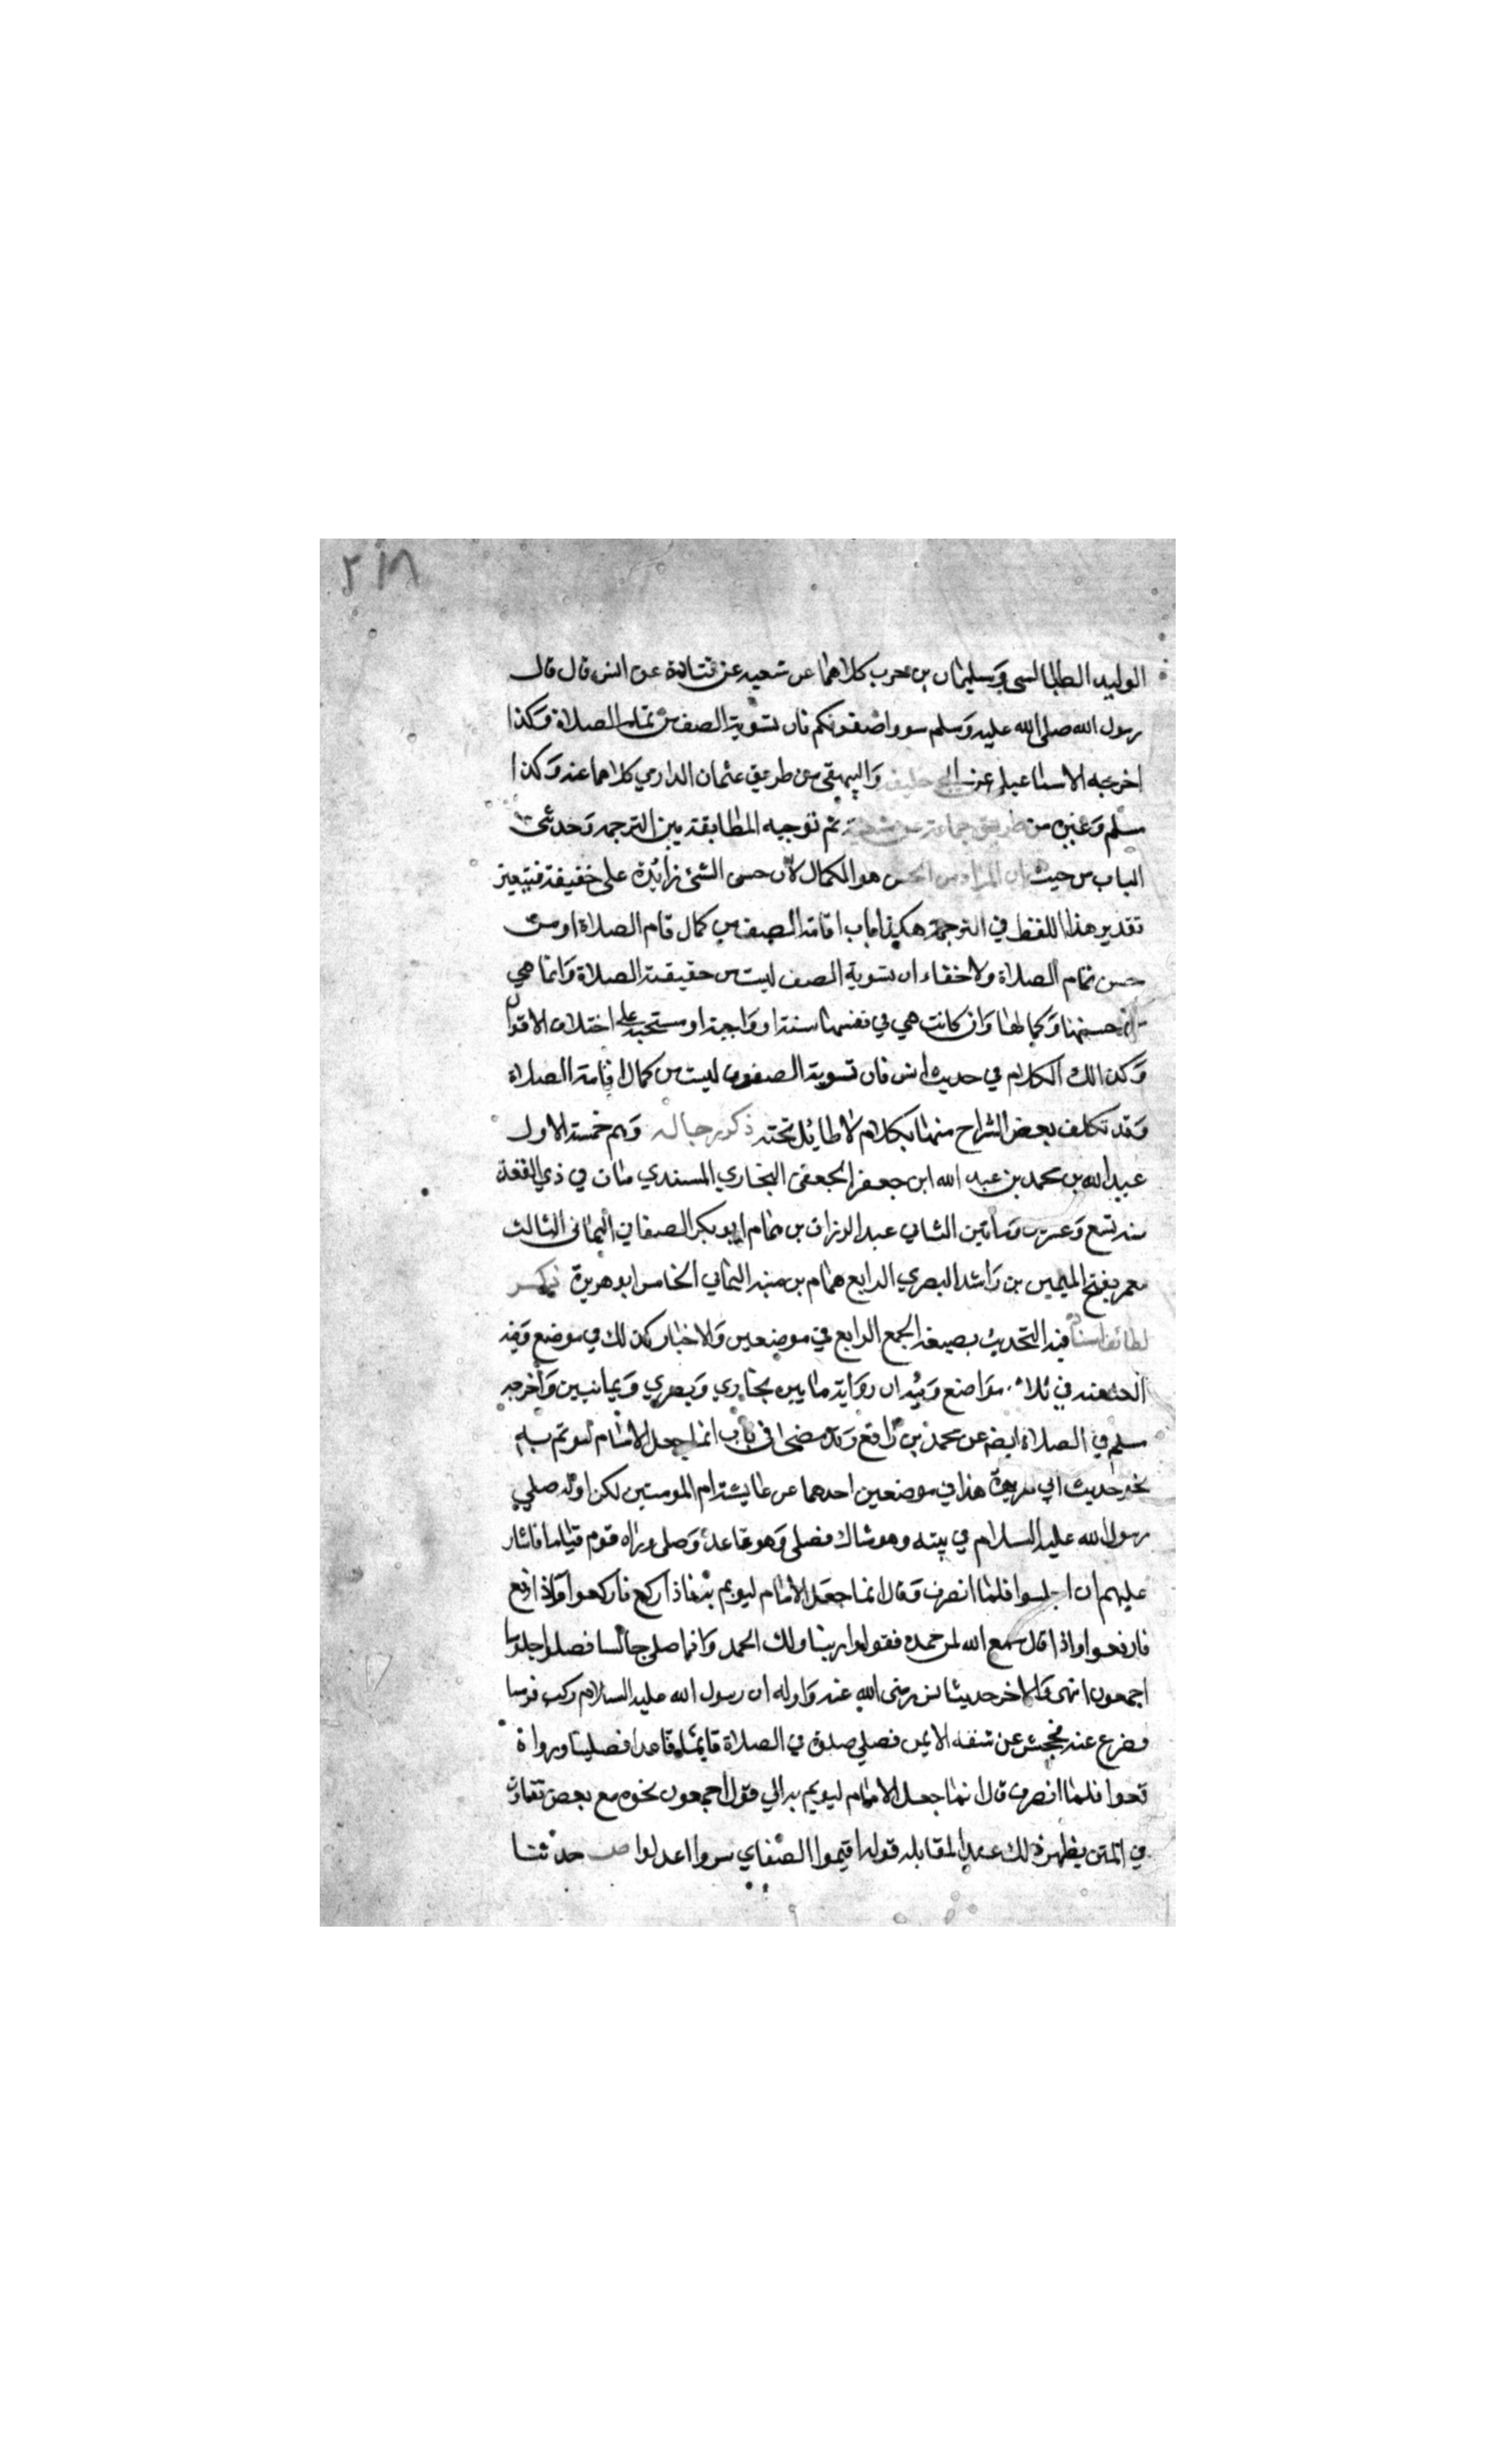 ٢١٨
الوليد الطيالسي وسليمان بن حرب كلاهما عن شعبة عن قتادة عن انس قال قال
رسول الله صلى الله عليه وسلم سووا صفوفكم فان تسوية الصف من تمام الصلاة وكذا
اخرجه الاسماعيلي عن ابي خليفة والبيهقي من طريق عثمان الدارمي كلاهما عنه وكذا
مسلم وغيره من طريق جماعة عن شعبة ثم توجيه المطابقة بين الترجمة وحديثي
الباب من حيث ان المراد من الحسن هو الكمال لان حسن الشئ زائدة على حقيقة فيتعين
تقدير هذا اللفظ في الترجمة هكذا باب اقامة الصف من كمال قام الصلاة او من
حسن تمام الصلاة ولا خفاء ان تسوية الصف ليست من حقيقة الصلاة وانما هي
من حسنها وكمالها وان كانت هي في نفسها سنة او واجبة او مستحبة على اختلاف الاقوال
وكذالك الكلام في حديث انس فان تسوية الصفوف ليست من كمال اقامة الصلاة
وقد تكلف بعض الشراح منهنا بكلام لا طائل تحته ذكر رجاله وهم خمسة الاول
عبد الله بن محمد بن عبد الله ابن جعفر الجعفي البخاري المسندي مات في ذي القعدة
سنة تسع وعشرين ومائتين الثاني عبد الرزاق بن همام ابو بكر الصنعاني اليماني الثالث
معمر بفتح الميمين بن راشد البصري الرابع همام بن منبه اليماني الخامس ابو هريرة ذكر
لطائف اسناده فيه التحديث بصيغة الجمع الرابع في موضعين والاخبار كذلك في موضع وفيه
العنعنة في ثلاث مواضع وفيه ان رواية ما بين بخاري وبصري ويمانيين واخرجه
مسلم في الصلاة ايضا عن محمد بن رافع وقد مضى في باب انما جعل الامام ليوتم به
نحو حديث ابي هريرة هذا في موضعين احدهما عن عايشة ام المومنين لكن اوله صلي
رسول الله عليه السلام في بيته وهو شاك فصلى وهو قاعد وصلى وراه قوم قياما فاشار
عليهم ان اجلسوا فلما انصرف وقال انما جعل الامام ليوتم به فاذا ركع فاركعوا واذا رفع
فارفعوا واذا قال سمع الله لمن حمده فقولوا ربنا ولك الحمد وانما صلى جالسا فصلوا جلوسا
اجمعون انتهى والاخر حديث انس رضي الله عنه واوله ان رسول الله عليه السلام ركب فرسا
فصرع عنه فجحش عن شقه الايمن فصلي صلاة في الصلاة قاعدا فصلينا وراه
قعوا فلما انصرف قال انما جعل الامام ليوتم به الي قوله اجمعون نحوه مع بعض تفاوت
في المتن يظهر ذلك عند المقابلة قوله اقيموا الصف اي سووا اعدلوا ص حدثنا